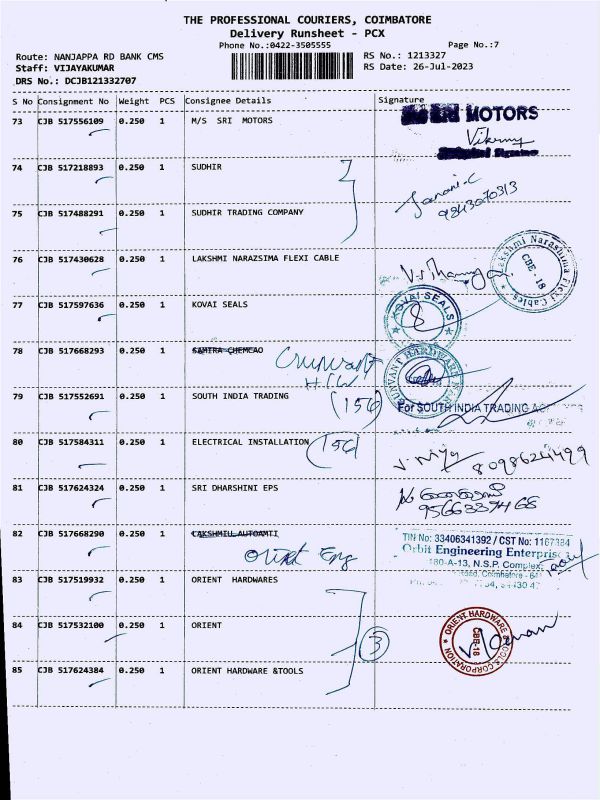 THE PROFESSIONAL COURIERS, COIMBATORE
Delivery Runsheet - PCX
Phone No.:0422-3505555 Page No.:7
Route: NANJAPPA RD BANK CMS RS No.: 1213327
Staff: VIJAYAKUMAR RS Date: 26-Jul-2023
DRS No.: DCJB121332707
S No Consignment No Weight PCS Consignee Details Signature
73 CJB 517556109 0.250 1 M/S SRI MOTORS
SRI MOTORS
74 CJB 517218893 0.250 1 SUDHIR
9843070313
75 CJB 517488291 0.250 1 SUDHIR TRADING COMPANY
76 CJB 517430628 0.250 1 LAKSHMI NARAZSIMA FLEXI CABLE
Lakshmi Narashima Flexi Cables
CBE - 18
77 CJB 517597636 0.250 1 KOVAI SEALS
KOVAI SEALS
78 CJB 517668293 0.250 1 SAMIRA CHEMEAO
H/W
79 CJB 517552691 0.250 1 SOUTH INDIA TRADING (156)
For SOUTH INDIA TRADING
80 CJB 517584311 0.250 1 ELECTRICAL INSTALLATION (156)
8098624499
81 CJB 517624324 0.250 1 SRI DHARSHINI EPS
82 CJB 517668290 0.250 1
Orbit Eng
TIN No: 33406341392 / CST No: 1167384
Orbit Engineering Enterprise
180-A-13, N.S.P. Complex,
Coimbatore - 641
83 CJB 517519932 0.250 1 ORIENT HARDWARES
84 CJB 517532100 0.250 1 ORIENT
3
ORIENT HARDWARE & TOOLS CORPORATION
CBE-18
85 CJB 517624384 0.250 1 ORIENT HARDWARE &TOOLS